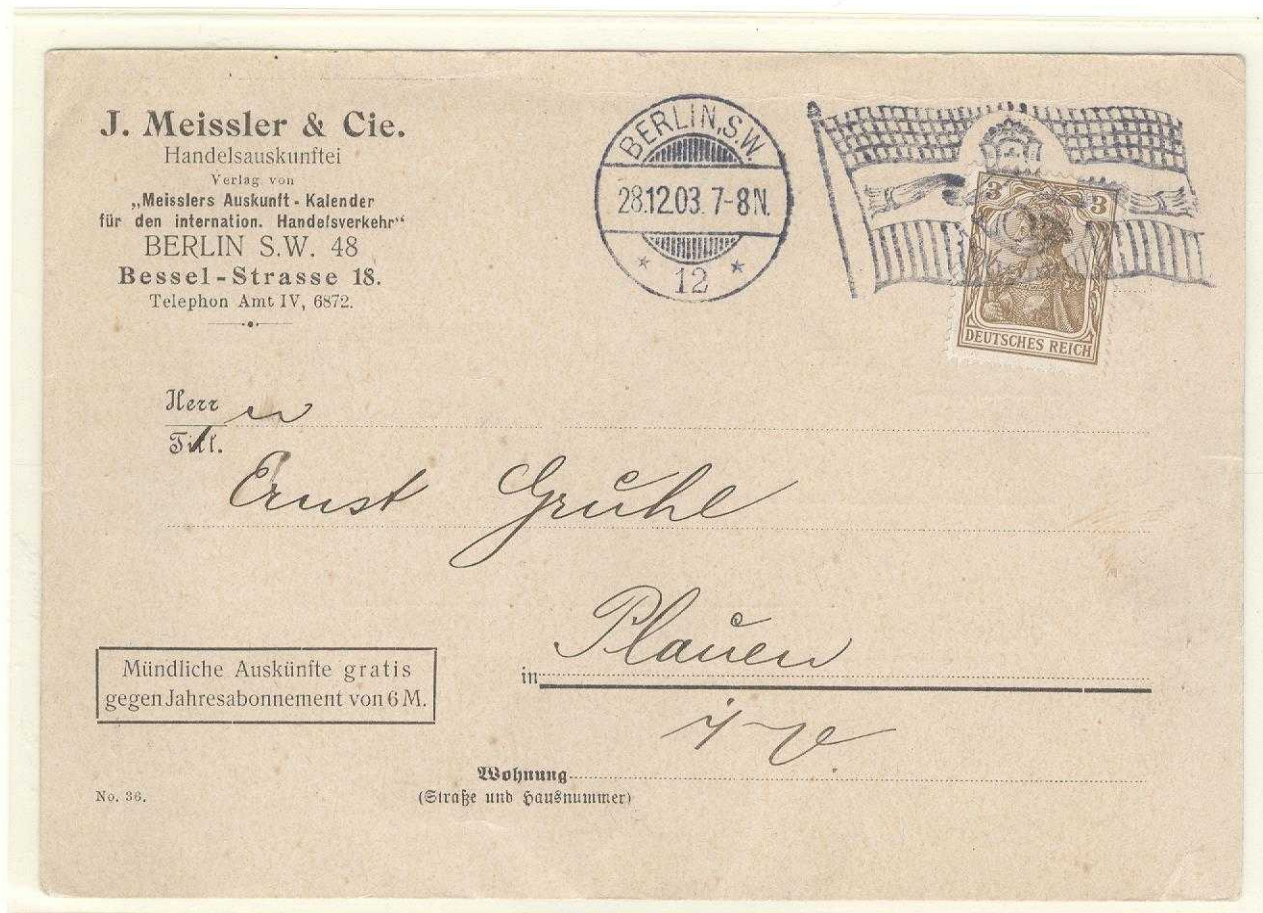 J. Meissler & Cie.
Handelsauskunftei
Verlag von
„Meisslers Auskunft-Kalender
für den internation. Handelsverkehr“
BERLIN S.W. 48
Bessel-Strasse 18.
Telephon Amt IV, 6872.
BERLIN, S.W.
28.12.03. 7-8N.
* 12 *
3 3
DEUTSCHES REICH
Herr
Ernst Gruhl
in Plauen
i/V
Mündliche Auskünfte gratis
gegen Jahresabonnement von 6 M.
Wohnung
(Straße und Hausnummer)
No. 36.